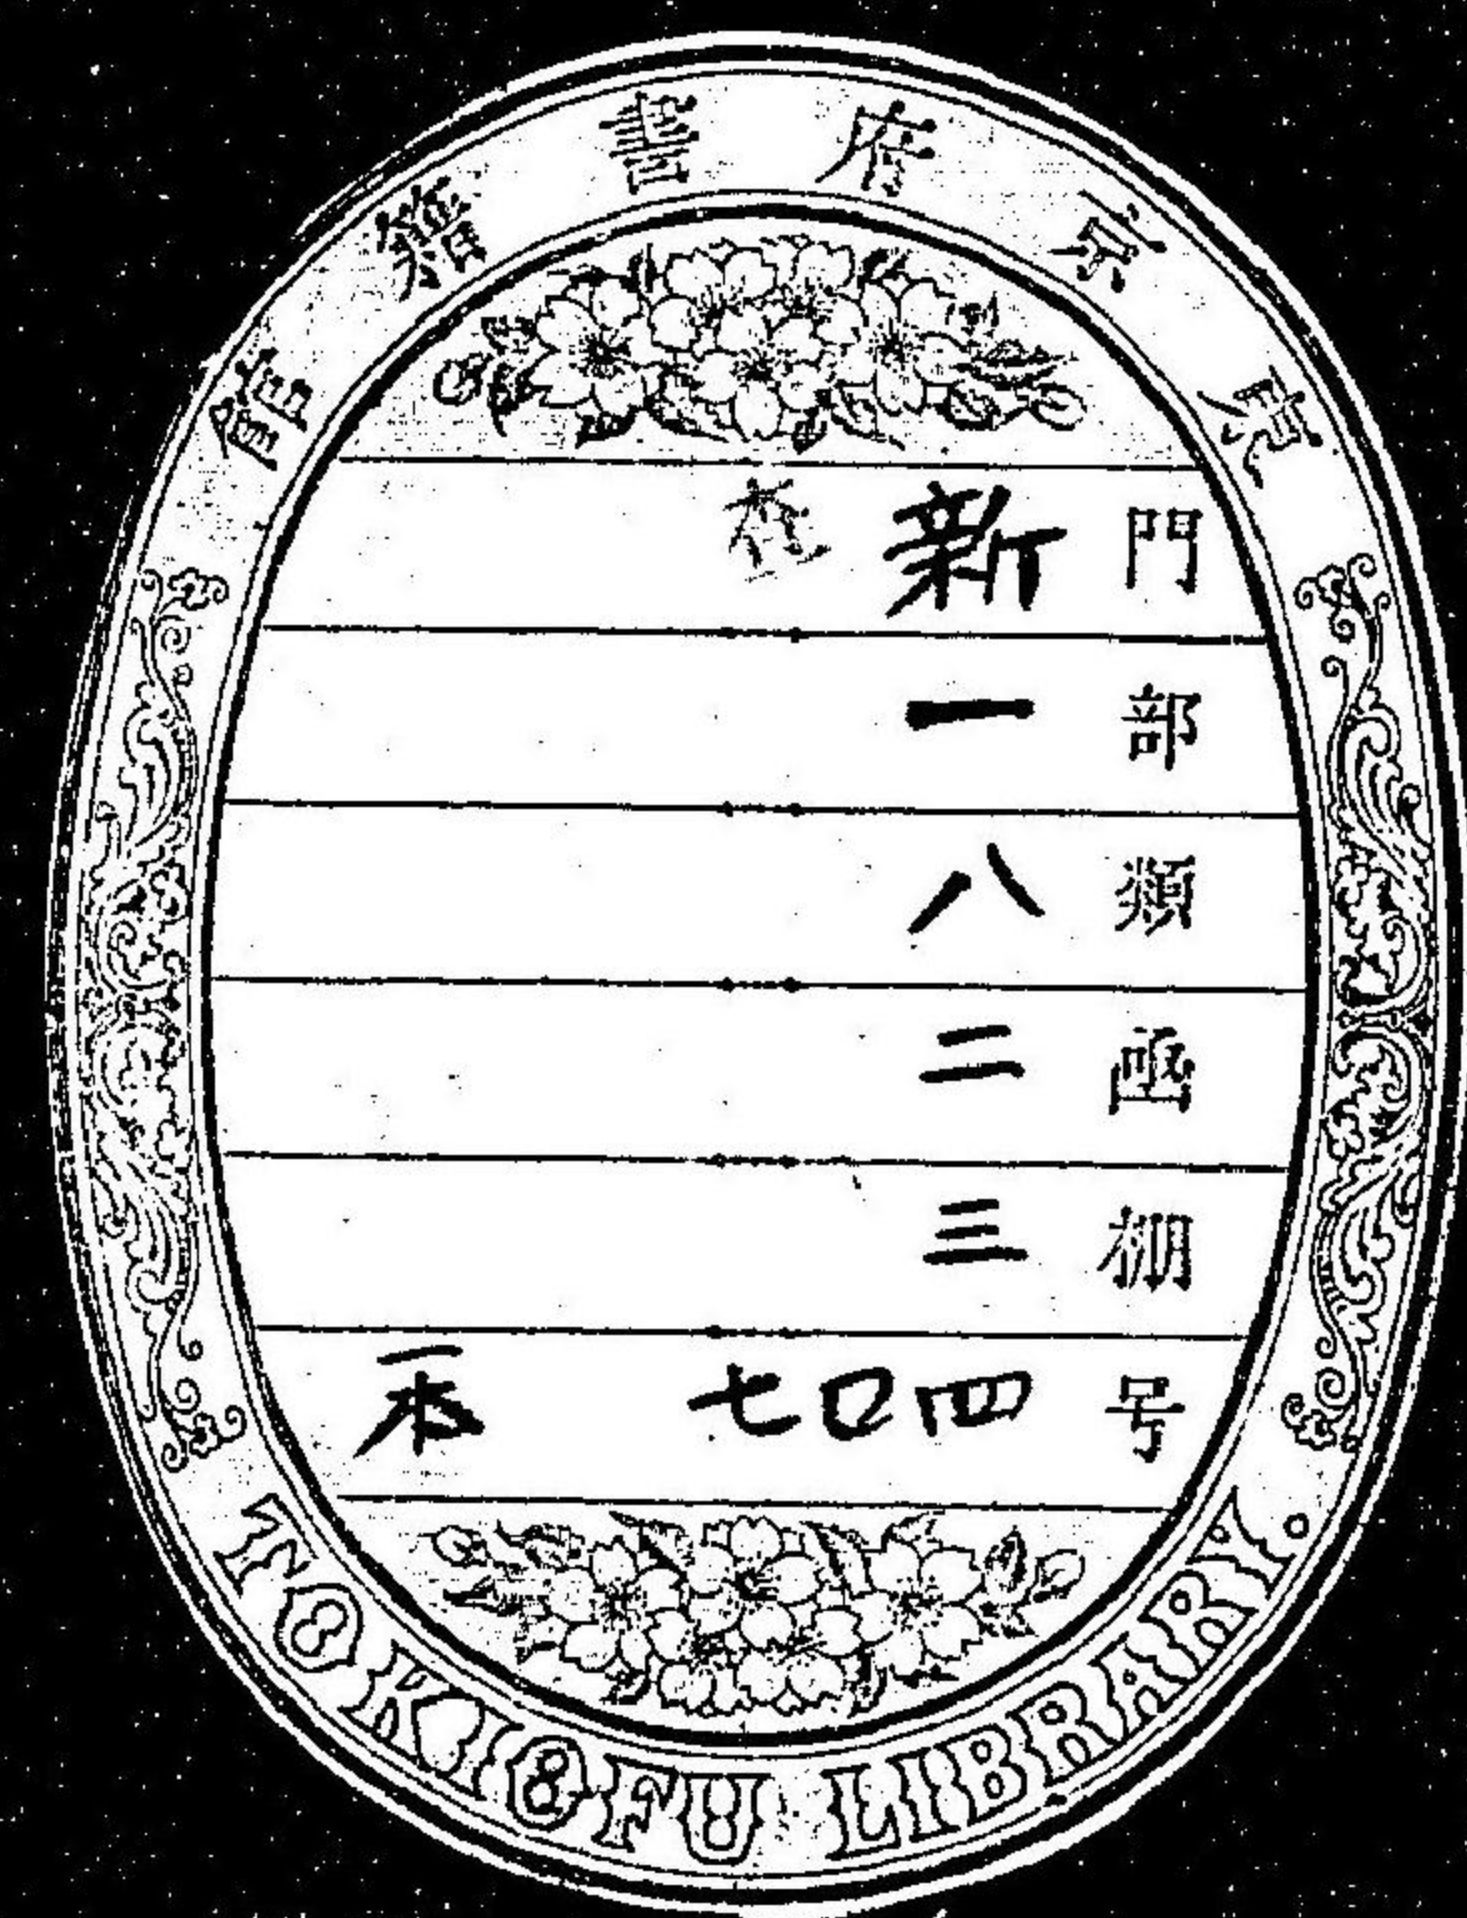 東京府書籍館
門 新
部 一
類 八
凾 二
棚 三
号 四〇七 一本
TOKIOFU LIBRARY.